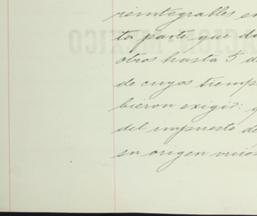 reintegrables en
ta parte que de
otros hasta 5 d
de cuyos tiemp
bieron exigir:
del impuesto de
su origen